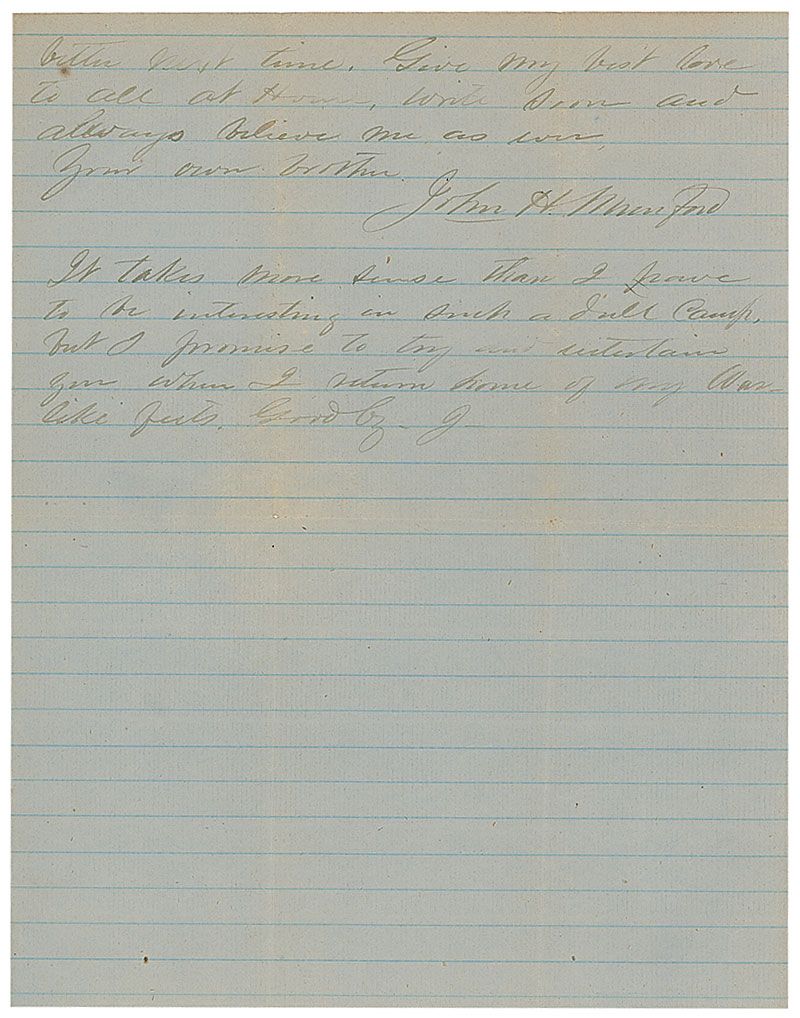 better next time. Give my best love
to all at Home, write soon and
always believe me as ever,
Your own brother
John H. Munford
It takes more sense than I have
to be interesting in such a dull Camp,
but I promise to try and entertain
you when I return home of my War-
like feets. Good by - J -